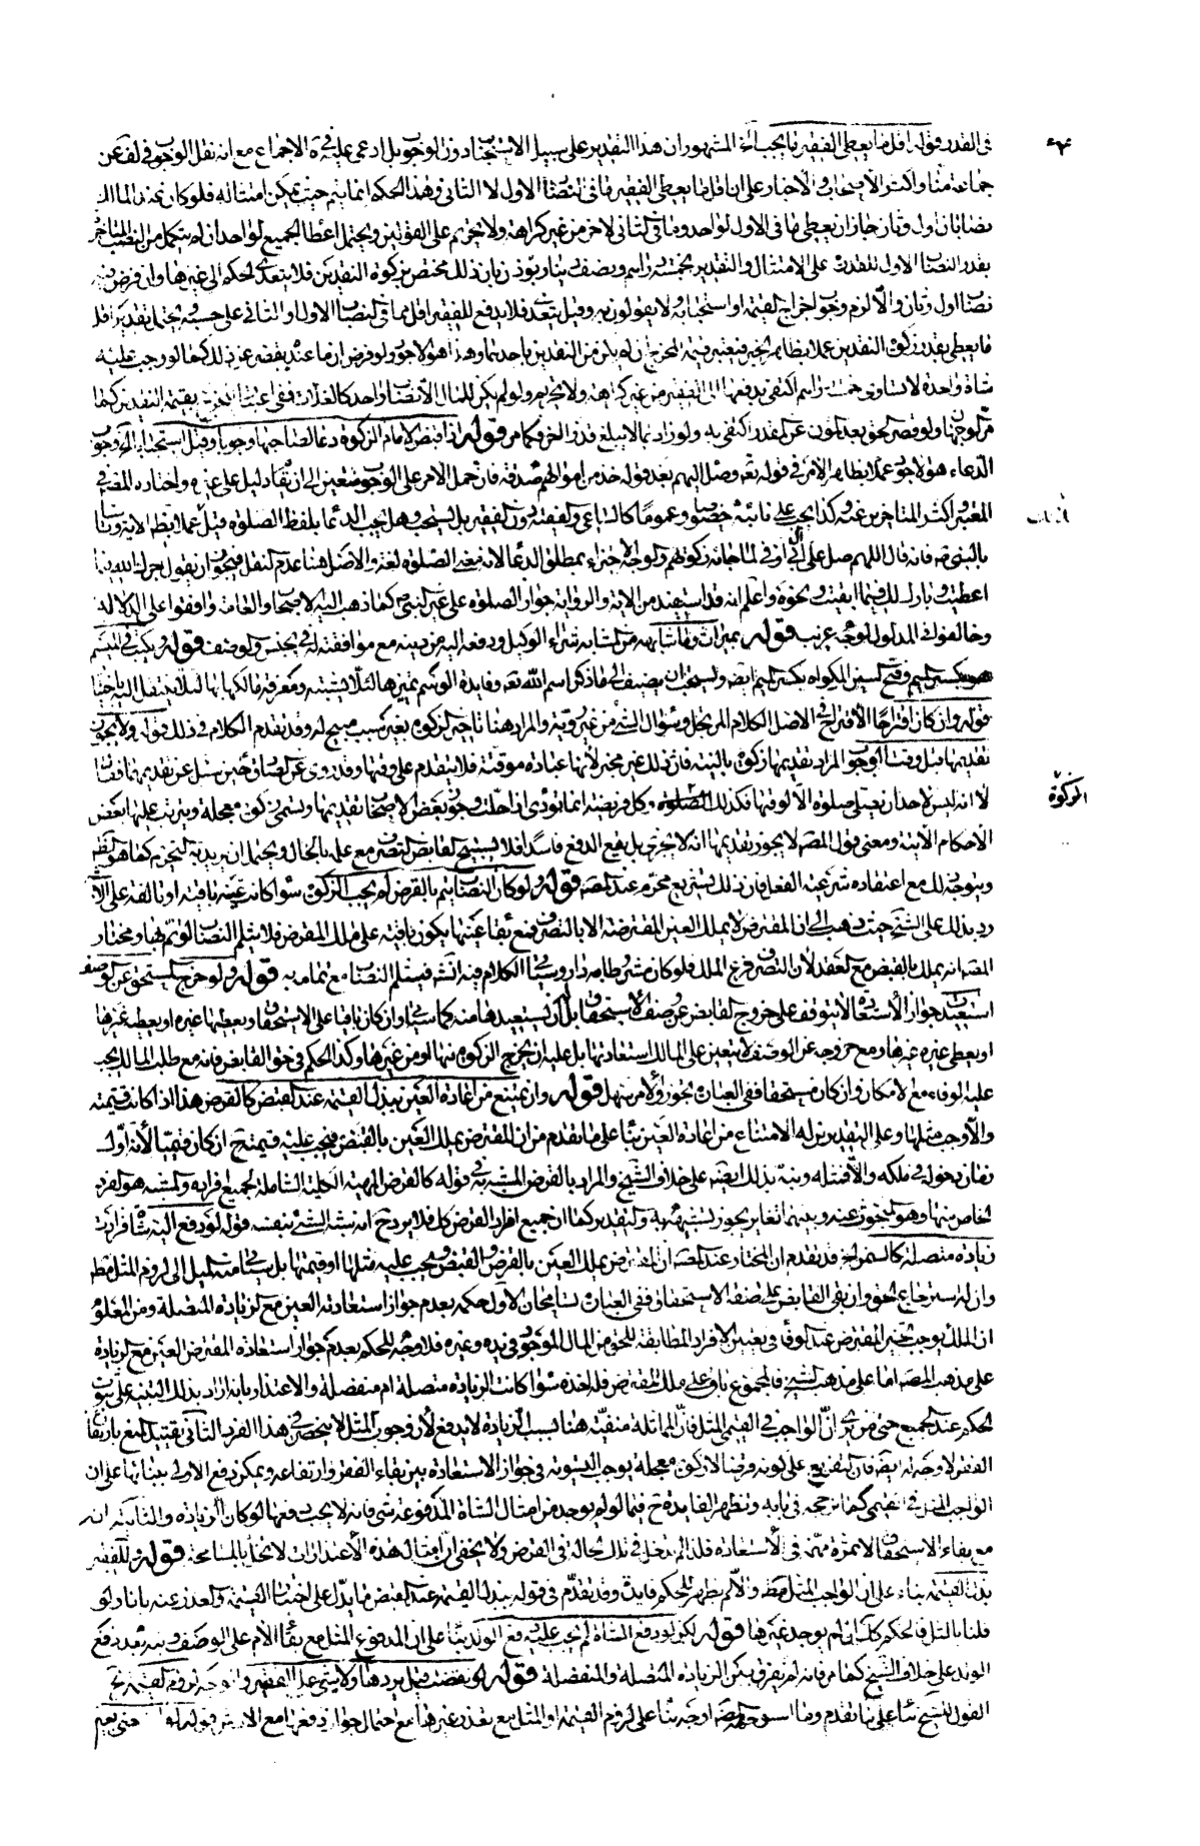 في القدر قوله اقل ما يعطى الفقير ما يجب اه المشهور ان هذا التقدير على سبيل الاستحباب دون الوجوب بل ادعى عليه في ة الاجماع مع انه نقل الوجوب في لف عن
جماعة منا واكثر الاصحاب والاخبار على ان اقل ما يعطى الفقير ما في النصاب الاول لا الثاني وهذا الحكم انما يتم حيث يمكن امتثاله فلو كان عند المالك
نصابان اول وثان جاز ان يعطى ما في الاول لواحد وما في الثاني لاخر من غير كراهة ولا تحريم على القولين ويحتمل اعطاء الجميع لواحد
بقدر النصاب الاول للقدرة على الامتثال والتقدير بخمسة دراهم وبنصف دينار يؤذن بان ذلك مختص بزكوة النقدين فلا يتعدى الحكم الى غيرها وان فرض فيه
نصاب اول وثان والا لزم وجوب اخراج القيمة او استحبابه ولا يقولون به وقيل يتعدى فلا يدفع للفقير اقل مما في النصاب الاول او الثاني على حسبه ويحتمل تقدير اقل
ما يعطى بقدر زكوة النقدين عملا بظاهر الخبر فيعتبر قيمة المخرج ان لم يكن من النقدين باحدهما وهذا هو الاجود ولو فرض ان ما عنده ينقص عن ذلك كما لو وجب عليه
شاة واحدة لا تساوي خمسة دراهم اكتفى بدفعها الى الفقير من غير كراهة ولا تحريم ولو لم يكن للمال الا نصاب واحد كالغلات ففي اعتبار بقيمة النقدين كما
مر الوجهان ولو قصر الحق بعد عن القدر اكتفى به ولو زاد بما لا يبلغ قدرا اخر فكما مر قوله اذا قبض الامام الزكوة دعا لصاحبها وجوبا وقيل استحبابا اه وجوب
الدعاء هو الاجود عملا بظاهر الامر في قوله تعالى وصل عليهم بعد قوله خذ من اموالهم صدقة فان حمل الامر على الوجوب متعين الى ان يقام دليل على غيره واختاره المصنف في
المعتبر واكثر المتاخرين عنه وكذا يجب على نائبه خصوصا وعموما كالساعي والفقيه دون الفقير بل يستحب وهل يجب الدعاء بلفظ الصلوة قيل عملا بظاهر الاية
بالنبي ص فانه قال اللهم صل على آل ابي اوفى لما جاءه بزكوتهم والوجه الاجزاء بمطلق الدعاء لانه معنى الصلوة لغة والاصل هنا عدم النقل فيجوز ان يقول اجرك الله فيما
اعطيت وبارك لك فيما ابقيت ونحوه واعلم انه قد استفيد من الاية والرواية جواز الصلوة على غير النبي ص كما ذهب اليه الاصحاب والعامة وافقوا على الدلالة
وخالفوا في المدلول لوجه غريب قوله بميراث وما شابهه من المشابه شراء الوكيل ودفعه اليه من دينه مع موافقته له في الجنس والوصف قوله ويكتب في الميسم
هو بكسر الميم وفتح السين المكواة بكسر الميم ايضا ويستحب ان يضيف الى ما ذكر اسم الله تعالى وفائدة الوسم تميزها لئلا تشتبه ومعرفة مالكها بها لئلا تنتقل اليه
قوله وان كان اقتراحا الاقتراح في الاصل الكلام المرتجل وسؤال الشيء من غير روية والمراد هنا تاخير الزكوة بغير سبب مبيح له وقد تقدم الكلام في ذلك قوله ولا يجوز
تقديمها قبل وقت الوجوب المراد تقديمها زكوة بالنية فان ذلك غير مجز لانها عبادة موقتة فلا يتقدم على وقتها وقد روى عن الصادق ع حين سئل عن تقديمها فقال
لا انه ليس لاحد ان يصلى صلوة الا لوقتها فكذلك الزكوة وكل فريضة انما تؤدى اذا حلت وجوز بعض الاصحاب تقديمها وتسمى زكوة معجلة ويترتب عليها بعض
الاحكام الاتية ومعنى قول المصنف لا يجوز تقديمها انه لا يجزى بل يقع الدفع فاسدا فلا يستبيح القابض التصرف مع علمه بالحال ويحتمل ان يريد به التحريم كما هو
ويتوجه ذلك مع اعتقاده شرعية الفعل فان ذلك تشريع محرم عند المصنف قوله ولو كان النصاب يتم بالقرض لم يجب الزكوة سواء كانت عينه باقية او تالفة على الاشبه
رد بذلك على الشيخ حيث ذهب الى ان المقترض لا يملك العين المقترضة الا بالتصرف فمع بقاء عينها يكون باقية على ملك المقرض فلا ينثلم النصاب لو تم بها ومختار
المصنف انه يملك بالقبض مع العقد لان التصرف فرع الملك فلو كان مشروطا به دار وسياتي الكلام فيه انشاء فينثلم النصاب مع تمامه به قوله ولو خرج المستحق عن الوصف
استعيدت جواز الاستعادة لا يتوقف على خروج القابض عن وصف الاستحقاق بل له ان يستعيدها منه كما سياتي وان كان باقيا على الاستحقاق ويعطيها غيره او يعطيه غيرها
او يعطى غيره غيرها ومع خروجه عن الوصف لا يتعين على المالك استعادتها بل عليه ان يخرج الزكوة منها او من غيرها وكذا الحكم في حق القابض فانه مع طلب المالك يجب
عليه الوفاء مع الامكان وان كان مستحقا ففي العبارة تجوز والامر سهل قوله وان يمتنع من اعادة العين ببذل القيمة عند القبض كالقرض هذا اذا كانت قيمية
والا وجب مثلها وعلى التقديرين له الامتناع من اعادة العين بناء على ما تقدم من ان المقترض يملك العين بالقبض فيجب عليه قيمته ح ان كان قيميا لانه اول
زمان دخوله في ملكه والا فمثله ونبه بذلك ايضا على خلاف الشيخ والمراد بالقرض المشبه به في قوله كالقرض المهية الكلية الشاملة لجميع افراده والمشبه هو الفرد
الخاص منها وهو المبحوث عنه وبينهما تغاير يجوز لتشبيهه به والتقدير كما ان جميع افراد القرض كك فلا يرد ح انه شبه الشيء بنفسه قوله لو دفع اليه شاة فزادت
زيادة متصلة كالسمن اه قد تقدم ان المختار عند المصنف ان المقترض يملك العين بالقرض والقبض ويجب عليه مثلها او قيمتها بل سياتي منه الميل الى لزوم المثل مط
وان له استرجاع الحق وان بقى القابض على صفة الاستحقاق ففي العبارة تسامحان الاول حكمه بعدم جواز استعادته العين مع الزيادة المتصلة ومن المعلوم
ان الملك يوجب تخيير المقترض عند الوفاء في تعيين الافراد المطابقة للحق من المال الموجود في يده وغيره فلا وجه للحكم بعدم جواز استعادة المقترض العين مع الزيادة
على مذهب المصنف اما على مذهب الشيخ فالمجموع باق على ملك المقرض فله اخذه سواء كانت الزيادة متصلة ام منفصلة والاعتذار بانه اراد بذلك التنبيه على ثبوت
الحكم عند الجميع حتى من يرى ان الواجب في القيمي المثل فان المماثلة منفية هنا بسبب الزيادة لا يدفع لان وجوب المثل لا ينحصر في هذا الفرد الثاني تقييد المنع بارتفاع
الفقر لا وجه له ايضا فان التفريع على كونه قرضا لا زكوة معجلة يوجب التسوية في جواز الاستعادة بين بقاء الفقر وارتفاعه ويمكن دفع الاول ببنائها على ان
الواجب المثل في القيمي كما نرجحه في بابه وتظهر الفايدة ح فيما لو لم يوجد من امثال الشاة المدفوعة شيء فانه لا يجب دفعها لو كان الزيادة والثاني بانه
مع بقاء الاستحقاق لا ثمرة مهمة في الاستعادة فلذا لم تدخل في تلك الحالة في الفرض ولا يخفى ان امثال هذه الاعتذارات لا تخلو بالمسامحة قوله وللفقير
بذل القيمة بناء على ان الواجب المثل مط والا لم يظهر للحكم فايدة وقد تقدم في قوله ببذل القيمة عند القبض ما يدل على اختيار القيمة والعذر عنه بانا ولو
قلنا بالمثل فالحكم كك اذا لم يوجد غيرها قوله لكن لو دفع الشاة لم يجب عليه دفع الولد بناء على ان المدفوع المثل مع بقاء الام على الوصف ونبه بعدم دفع
الولد على خلاف الشيخ كما مر فانه لم يفرق بين الزيادة المتصلة والمنفصلة قوله لو نقصت قيل يردها ولا شيء على الفقير والوجه لزوم القيمة ح
القول للشيخ بناء على ما تقدم وما اوجه بناء على لزوم القيمة او المثل مع تعذر غير هذا مع احتمال جواز دفعها مع الارش قوله
الزكوة